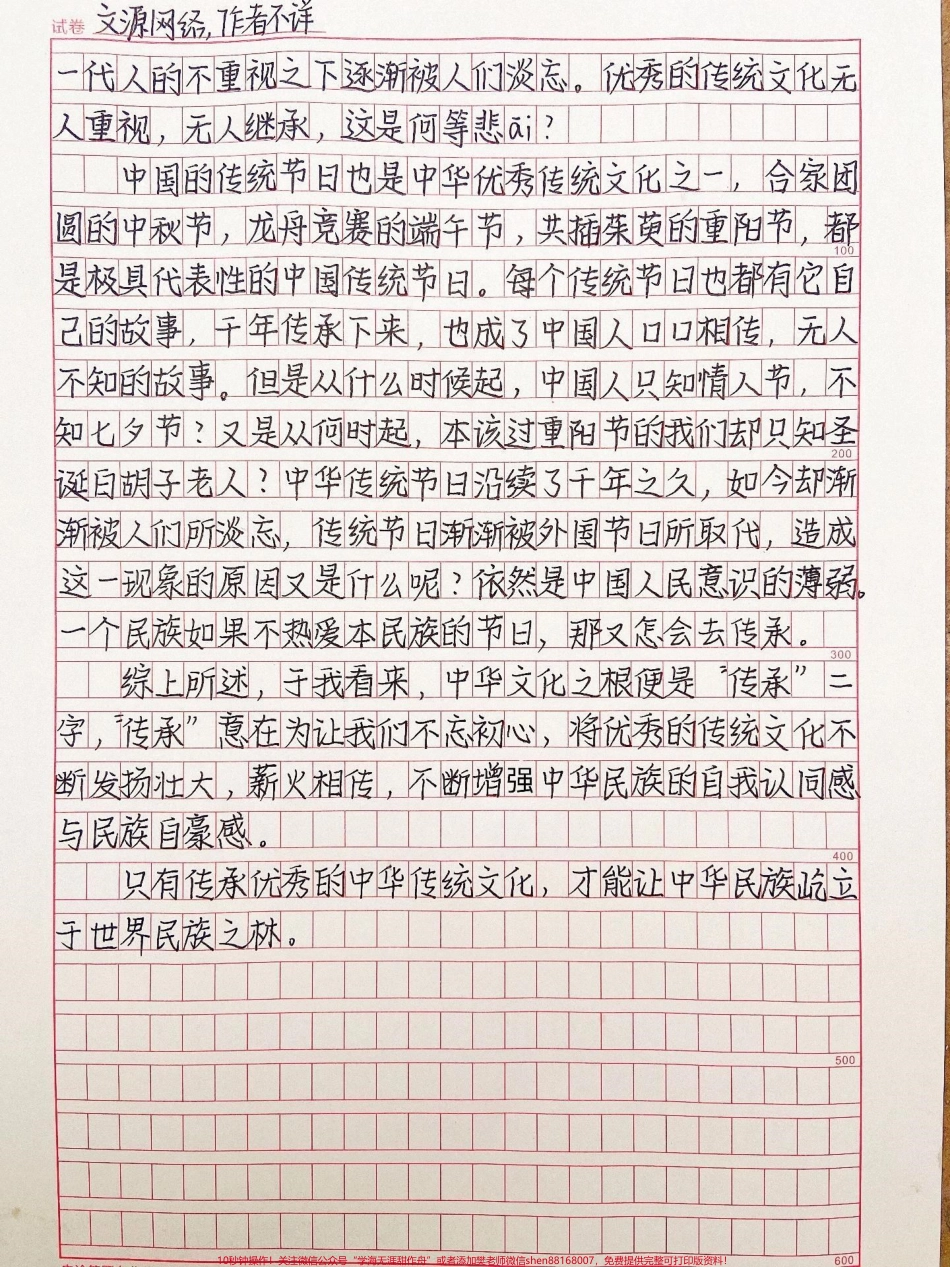 试卷 文源网络,作者不详
一代人的不重视之下逐渐被人们淡忘。优秀的传统文化无
人重视，无人继承，这是何等悲āi？
中国的传统节日也是中华优秀传统文化之一，合家团
圆的中秋节，龙舟竞赛的端午节，共插茱萸的重阳节，都
100
是极具代表性的中国传统节日。每个传统节日也都有它自
己的故事，千年传承下来，也成了中国人口口相传，无人
不知的故事。但是从什么时候起，中国人只知情人节，不
知七夕节？又是从何时起，本该过重阳节的我们却只知圣
200
诞白胡子老人？中华传统节日沿续了千年之久，如今却渐
渐被人们所淡忘，传统节日渐渐被外国节日所取代，造成
这一现象的原因又是什么呢？依然是中国人民意识的薄弱。
一个民族如果不热爱本民族的节日，那又怎会去传承。
300
综上所述，于我看来，中华文化之根便是“传承”二
字，“传承”意在为让我们不忘初心，将优秀的传统文化不
断发扬壮大，薪火相传，不断增强中华民族的自我认同感
与民族自豪感。
400
只有传承优秀的中华传统文化，才能让中华民族屹立
于世界民族之林。
500
10秒钟操作！关注微信公众号“学海无涯甜作舟”或者添加樊老师微信shen88168007，免费提供完整可打印版资料！
600